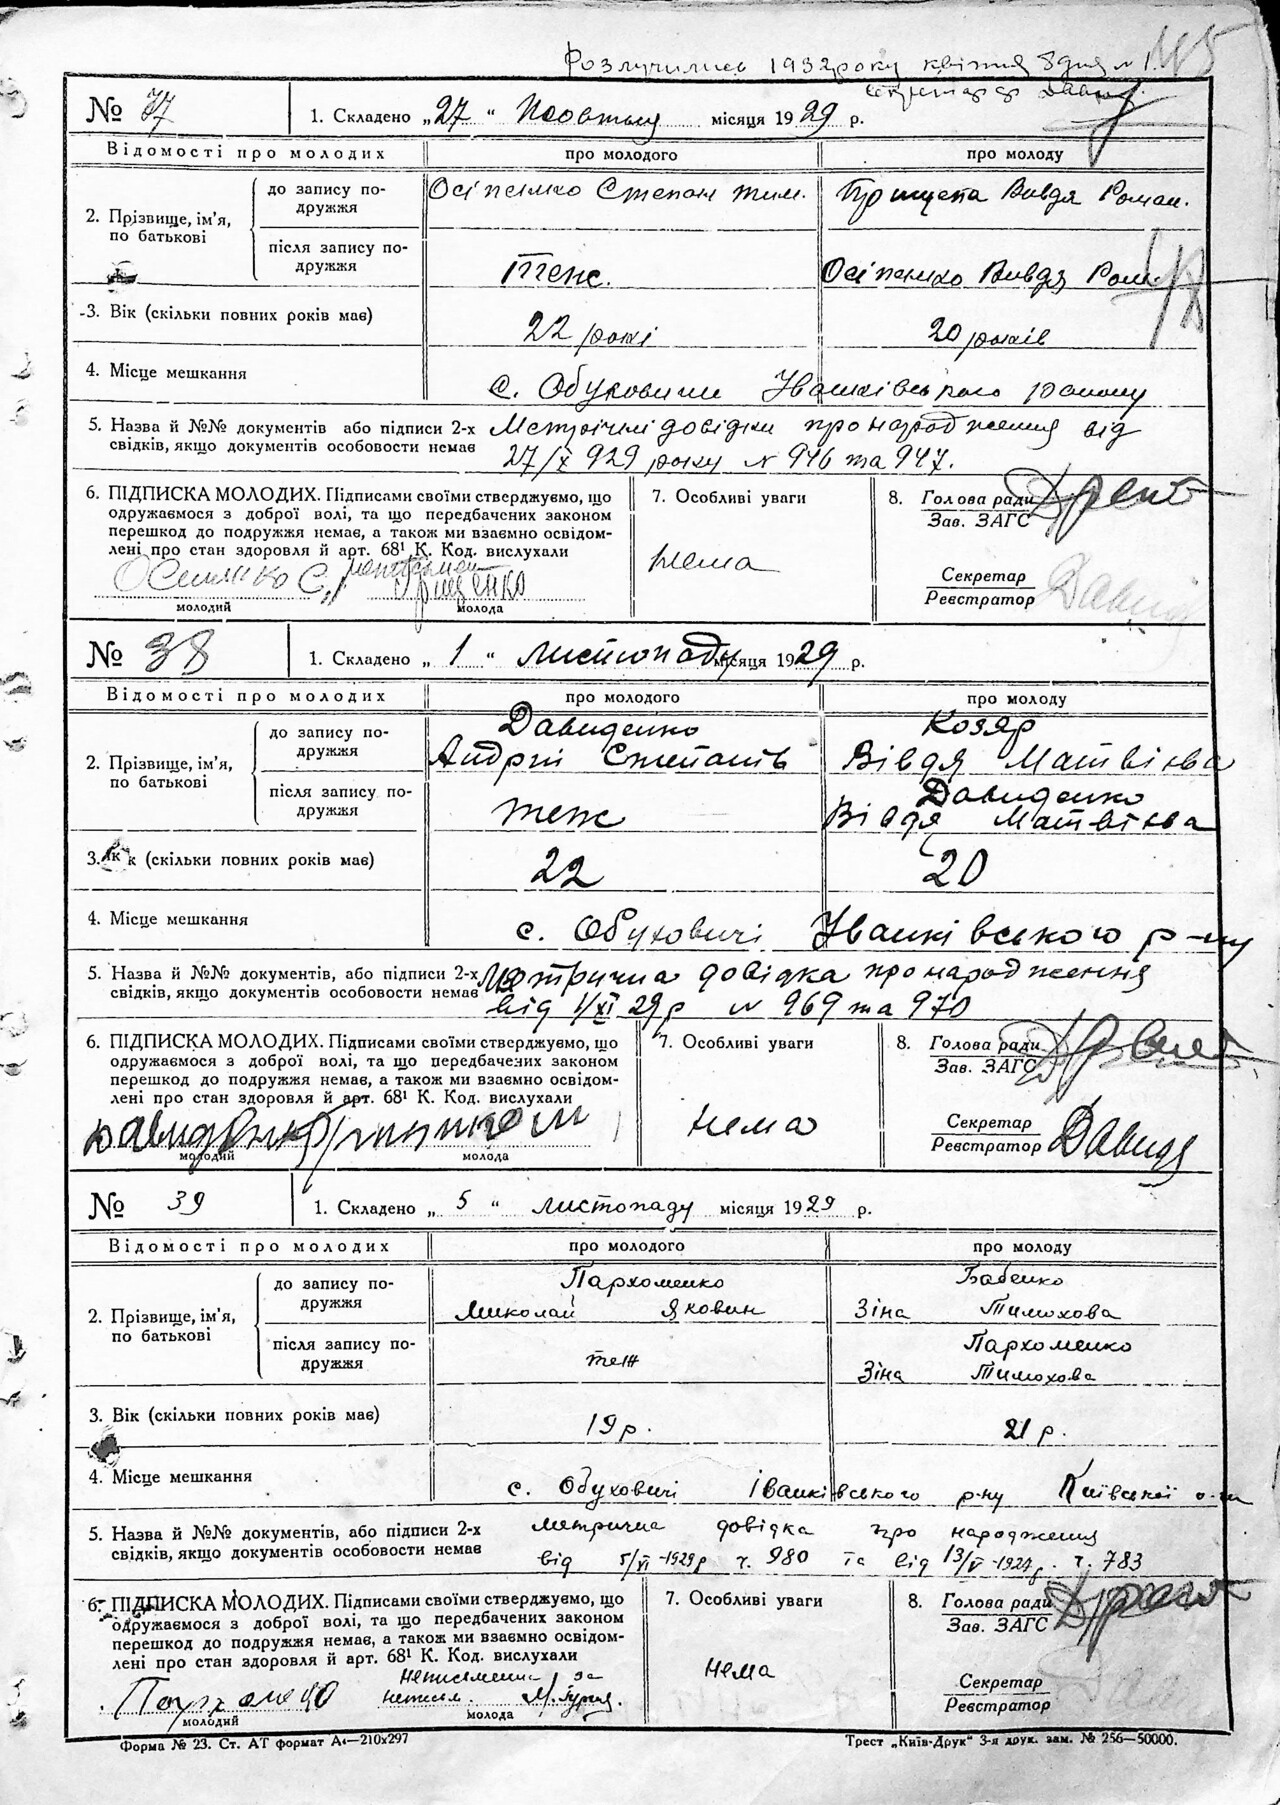 Розлучились 1932 року квітня 8 дня № 1.
секретар
№ 37 1. Складено „27“ Жовтня місяця 1929 р.
Відомості про молодих про молодого про молоду
2. Прізвище, ім'я, по батькові
до запису подружжя Осіпенко Степан Тим. Вивдя Роман.
після запису подружжя Теж. Осіпенко Вивдя Ром.
3. Вік (скільки повних років має) 22 років 20 років
4. Місце мешкання с. Обуховичи Іванківського району
5. Назва й №№ документів або підписи 2-х Метричні довідки про народження від
свідків, якщо документів особовости немає 27/X 929 року № 946 та 947.
6. ПІДПИСКА МОЛОДИХ. Підписами своїми стверджуємо, що
одружаємося з доброї волі, та що передбачених законом
перешкод до подружжя немає, а також ми взаємно освідом-
лені про стан здоровля й арт. 68¹ К. Код. вислухали
молодий молода
7. Особливі уваги
нема
8. Голова ради
Зав. ЗАГС
Секретар
Реєстратор
№ 38 1. Складено „1“ листопаду місяця 1929 р.
Відомості про молодих про молодого про молоду
2. Прізвище, ім'я, по батькові
до запису подружжя Давиденко Андрій Степанів Козяр Вівдя Матвієва
після запису подружжя теж Давиденко Вівдя Матвієва
3. Вік (скільки повних років має) 22 20
4. Місце мешкання с. Обуховичі Іванківського р-ну
5. Назва й №№ документів, або підписи 2-х Метрична довідка про народження
свідків, якщо документів особовости немає від 1/XI 29 р № 969 та 970
6. ПІДПИСКА МОЛОДИХ. Підписами своїми стверджуємо, що
одружаємося з доброї волі, та що передбачених законом
перешкод до подружжя немає, а також ми взаємно освідом-
лені про стан здоровля й арт. 68¹ К. Код. вислухали
молодий молода
7. Особливі уваги
нема
8. Голова ради
Зав. ЗАГС
Секретар
Реєстратор Давиде
№ 39 1. Складено „5“ листопаду місяця 1929 р.
Відомості про молодих про молодого про молоду
2. Прізвище, ім'я, по батькові
до запису подружжя Пархоменко Миколай Яковин Бабенко Зіна Тимохова
після запису подружжя теж Пархоменко Зіна Тимохова
3. Вік (скільки повних років має) 19 р. 21 р.
4. Місце мешкання с. Обуховичі Іванківського р-ну Київської
5. Назва й №№ документів, або підписи 2-х метрична довідка про народження
свідків, якщо документів особовости немає від 5/VI -1929 р ч. 980 та від 13/V -1927 р. ч. 783
6. ПІДПИСКА МОЛОДИХ. Підписами своїми стверджуємо, що
одружаємося з доброї волі, та що передбачених законом
перешкод до подружжя немає, а також ми взаємно освідом-
лені про стан здоровля й арт. 68¹ К. Код. вислухали
Пархоменко неписьменна за
неписьм.
молодий молода
7. Особливі уваги
нема
8. Голова ради
Зав. ЗАГС
Секретар
Реєстратор
Форма № 23. Ст. АТ формат А4—210х297 Трест „Київ-Друк“ 3-я друк. зам. № 256—50000.